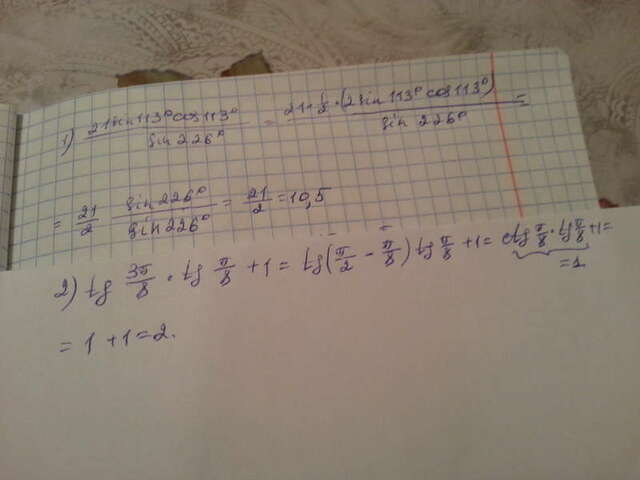 1) 21 sin 113° cos 113° / sin 226° = 21 · 1/2 · (2 sin 113° cos 113°) / sin 226° =
= 21/2 sin 226° / sin 226° = 21/2 = 10,5
2) tg 3π/8 · tg π/8 + 1 = tg(π/2 - π/8) tg π/8 + 1 = ctg π/8 · tg π/8 + 1 =
= 1
= 1 + 1 = 2.